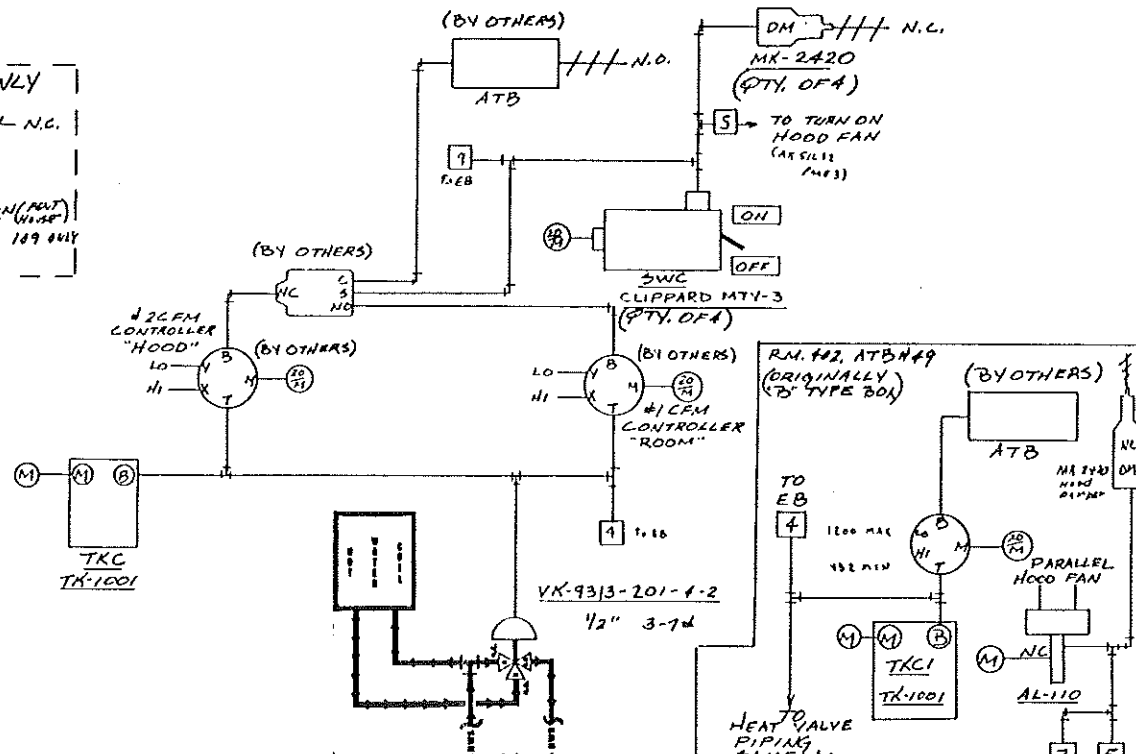 (BY OTHERS)
N.O.
ATB
DM
N.C.
MK-2420
(QTY. OF 4)
S
TO TURN ON
HOOD FAN
N.C.
109 ONLY
9
TO EB
20/M
ON
OFF
SWC
CLIPPARD MTV-3
(QTY. OF 4)
(BY OTHERS)
NC
C
S
NO
#2 CFM
CONTROLLER
"HOOD"
(BY OTHERS)
LO
HI
B
Y
X
M
T
20/M
(BY OTHERS)
LO
HI
B
Y
X
M
T
20/M
#1 CFM
CONTROLLER
"ROOM"
M
M
B
TKC
TK-1001
4
TO EB
HOT
WATER
COIL
VK-9313-201-4-2
RM. 402, ATB#49
(ORIGINALLY
"B" TYPE BOX)
(BY OTHERS)
ATB
NC
DM
TO
EB
4
1200 MAX
432 MIN
B
LO
HI
M
T
20/M
PARALLEL
HOOD FAN
M
M
B
TKC1
TK-1001
M
NC
AL-110
TO
HEAT VALVE
PIPING